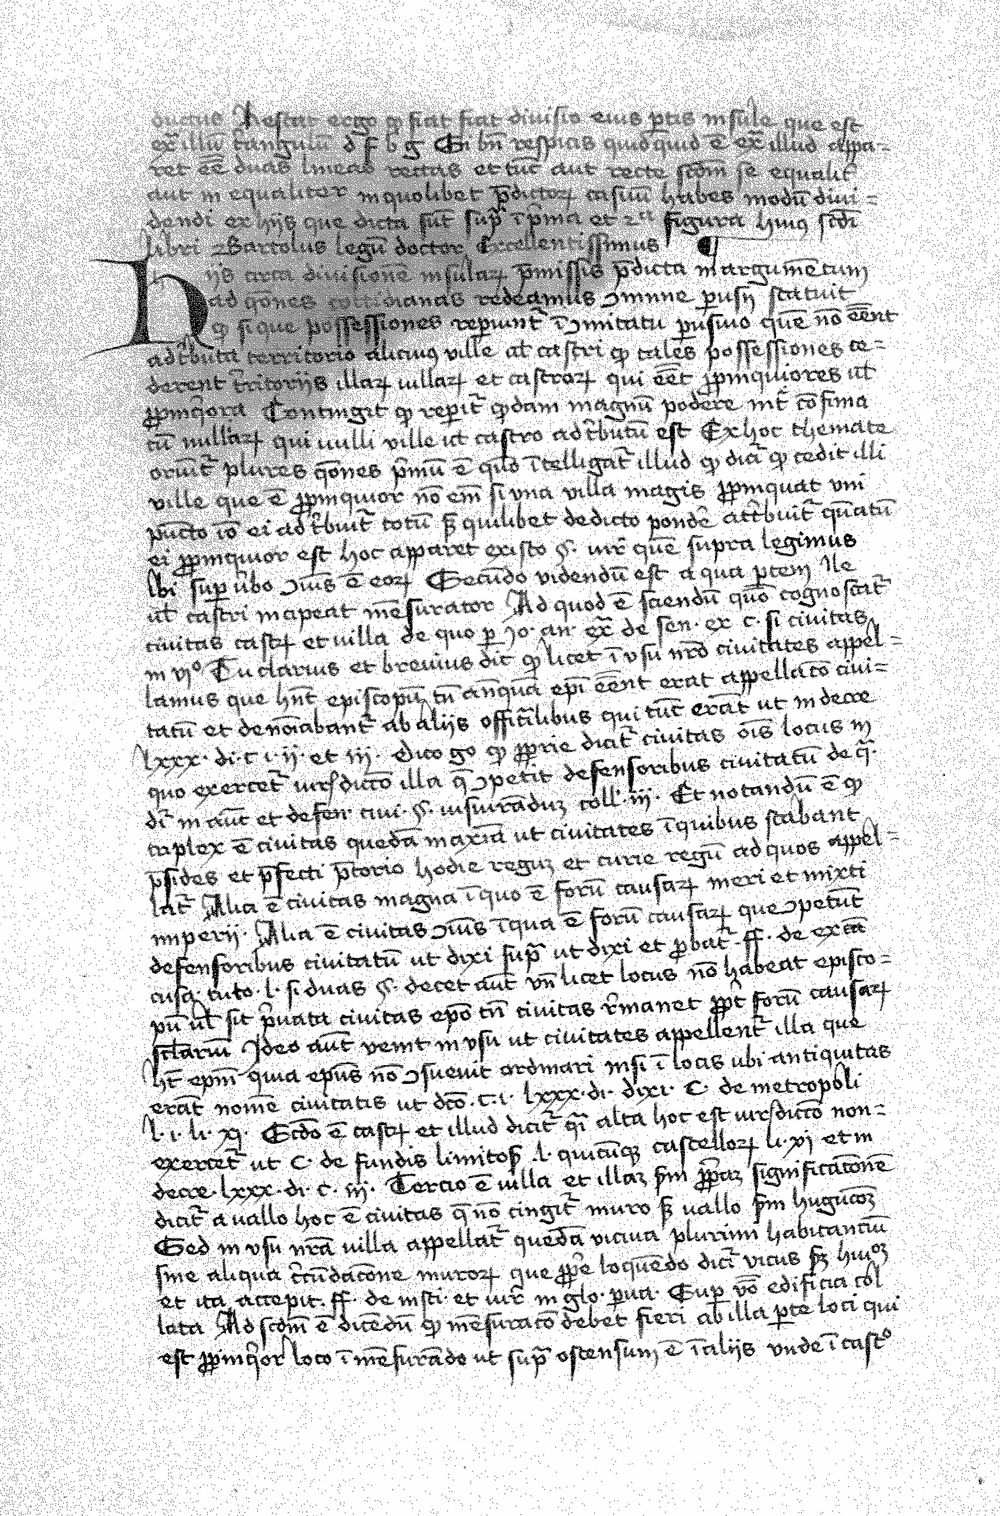 ductus Restat ergo qͥ fiat fiat divisio eius ptis insule que est
ex̄ illū t̄angulū d f b g Si bn̄ respicis quidquid ē ex̄ illud appa=
ret eē̄ duas lineas rectas et tūc aut recte scd̄m se equalit̄
aut in equaliter in quolibet p̄dictoꝝ casuū habes modū divi=
dendi ex hijs que dicta sūt sup̄ ī p̄ma et 2ᵃ figura huiꝰ scd̄i
libri Bartolus legū doctor Excellentissimus ¶
Hijs circa divisionē insulaꝝ p̄missis p̄dicta in argumētum
ad qōnes cottidianas redeamus ɔmune perusij statuit
qͥ si que possessiones reperiunt̄ ī ɔmitatu perusino que nō eēnt
ad t̄buta territorio alicuiꝰ ville al̄ castri qͥ tales possessiones ce=
derent t̄ritorijs illaꝝ villaꝝ et castroꝝ qui eēt ꝓpinquiores ul̄
ꝓpinq̄ora Contingit qͥ reperit̄ qͥdam magnū podere int̄ cōfinia
cū nullaꝝ qui nulli ville ul̄ castro ad t̄butū est Ex hoc themate
oriūt̄ plures qōnes p̄mū ē quō ītelligat̄ illud qͥ dicit̄ qͥ cedit illi
ville que ē ꝓpinquior nō em̄ si vna villa magis ꝓpinquat vni
pūcto iō ei ad t̄buit̄ totū sꝫ quilibet de dicto pondē att̄buit̄ quātū
ei ꝓpinquior est hoc apparet ex isto §. iur̄ quē supra legimus
ibi sup v̄bo ɔiūs ē eoꝝ Secundo videndū est a qua ptem ile
ul̄ castri incipeat mēsurator Ad quod ē sciendū quō cognoscat̄
civitas castꝝ et villa de quo p Jo. an. ex̄ de sen. ex c. si civitas
in vjᵒ Tu clarius et brevius dic qͥ licet ī vsu nr̄o civitates appel=
lamus que hn̄t episcopū tn̄ antiquā epī eēnt erat appellaco civi=
tatū et denoīabant̄ ab alijs officialibus qui tūc erāt ut in decre
lxxx. di. c. i. ij. et iij. dico go qͥ ꝓprie dicit̄ civitas oīs locus in
quo exercet̄ iurisdictō illa q̄ ɔpetit defensoribus civitatū de q̄.
dī in aūt et defen. civi. §. iusiurādum coll. iij. Et notandū ē qͥ
triplex ē civitas quedā maxīa ut civitates ī quibus stabant
p̄sides et p̄fecti p̄torio hodie regum et curie regū ad quos appel=
lat̄ Alia ē civitas magna ī quo ē forū causaꝝ meri et mixti
imperij. Alia ē civitas ɔiūs ī qua ē forū causaꝝ que ɔpetūt
defensoribus civitatū ut dixi sup̄ ut dixi et ꝓbat̄. ff. de excā
cusa. tuto. l. si duas §. decet aūt vn̄ licet locus nō habeat episco=
pū ul̄ sit p̄uata civitas epō tn̄ civitas r̄manet ꝓpt̄ forū causaꝝ
sclariū Ideo aūt venit in vsu ut civitates appellent̄ illa que
hn̄t epm̄ quia epūs nō ɔsuevit ordinari nisi ī locis ubi antiquitas
erat nomē civitatis ut dcō. c. i. lxxx. di. dixi. C. de metropoli
l. i. li. xi. Scd̄o ē castꝝ et illud dicit̄ qī alta hoc est iurisdictō non=
exercet̄ ut C. de fundis limitoꝝ .l. quicūqꝫ castelloꝝ li. xi et in
decre. lxxx. di. c. iij. Tercio ē villa et illam p̄m ꝓpam significatōnē
dicit̄ a vallo hoc ē civitas q̄ nō cingit̄ muro sꝫ vallo p̄m hugucōꝫ
Sed in vsu nr̄o villa appellat̄ quedā viciua plurimi habitanciū
sine aliqua c̄cūdacōne muroꝝ que ꝓpe loquēdo dicit̄ vicus sꝫ huiᵒꝫ
et ita accepit. ff. de insti. et iur̄ in glo. pua. Sup̄ vō edificia col
lata Ad scd̄m ē dicēdū qͥ mēsuracō debet fieri ab illa pte loci qui
est ꝓpinq̄or loco ī mēsurādo ut sup̄ ostensum ē ī alijs vnde ī castᵒ